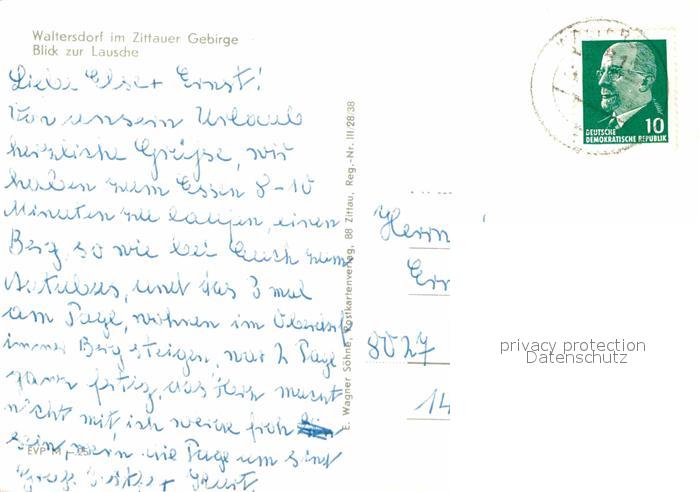 Waltersdorf im Zittauer Gebirge
Blick zur Lausche
Liebe Else + Ernst!
Von unsern Urlaub
herzliche Grüße, wir
haben zum Essen 8-10
Minuten zu laufen, einen
Berg, so wie bei Euch zum
Autobus, und das 3 mal
am Tage, wohnen im Oberdorf
immer Berg steigen, war 2 Tage
ganz fertig, das Herz macht
nicht mit, ich werde froh
sein, wenn die Tage um sind
Gruß + Kurt.
EVP M -,25
E. Wagner Söhne, Postkartenverlag, 88 Zittau, Reg.-Nr. III/28/38
DEUTSCHE
DEMOKRATISCHE REPUBLIK
10
Herrn
Ern
8027
14
privacy protection
Datenschutz